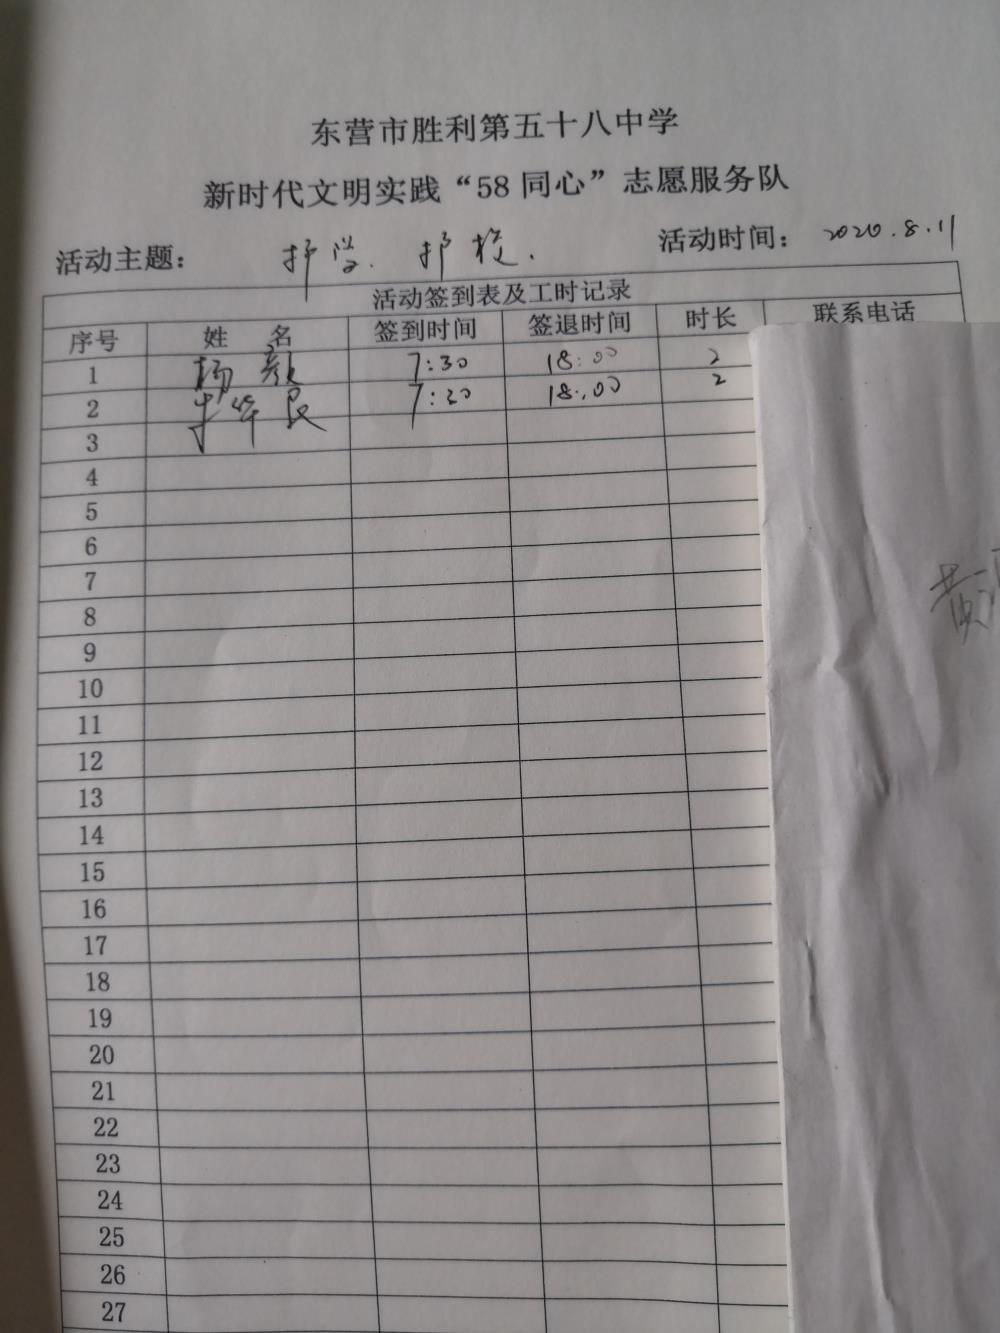 东营市胜利第五十八中学
新时代文明实践“58 同心”志愿服务队
活动主题： 护学. 护校. 活动时间： 2020.8.11
活动签到表及工时记录
序号 姓 名 签到时间 签退时间 时长 联系电话
1 杨颜 7:30 18:00 2
2 7:30 18:00 2
3
4
5
6
7
8
9
10
11
12
13
14
15
16
17
18
19
20
21
22
23
24
25
26
27
黄